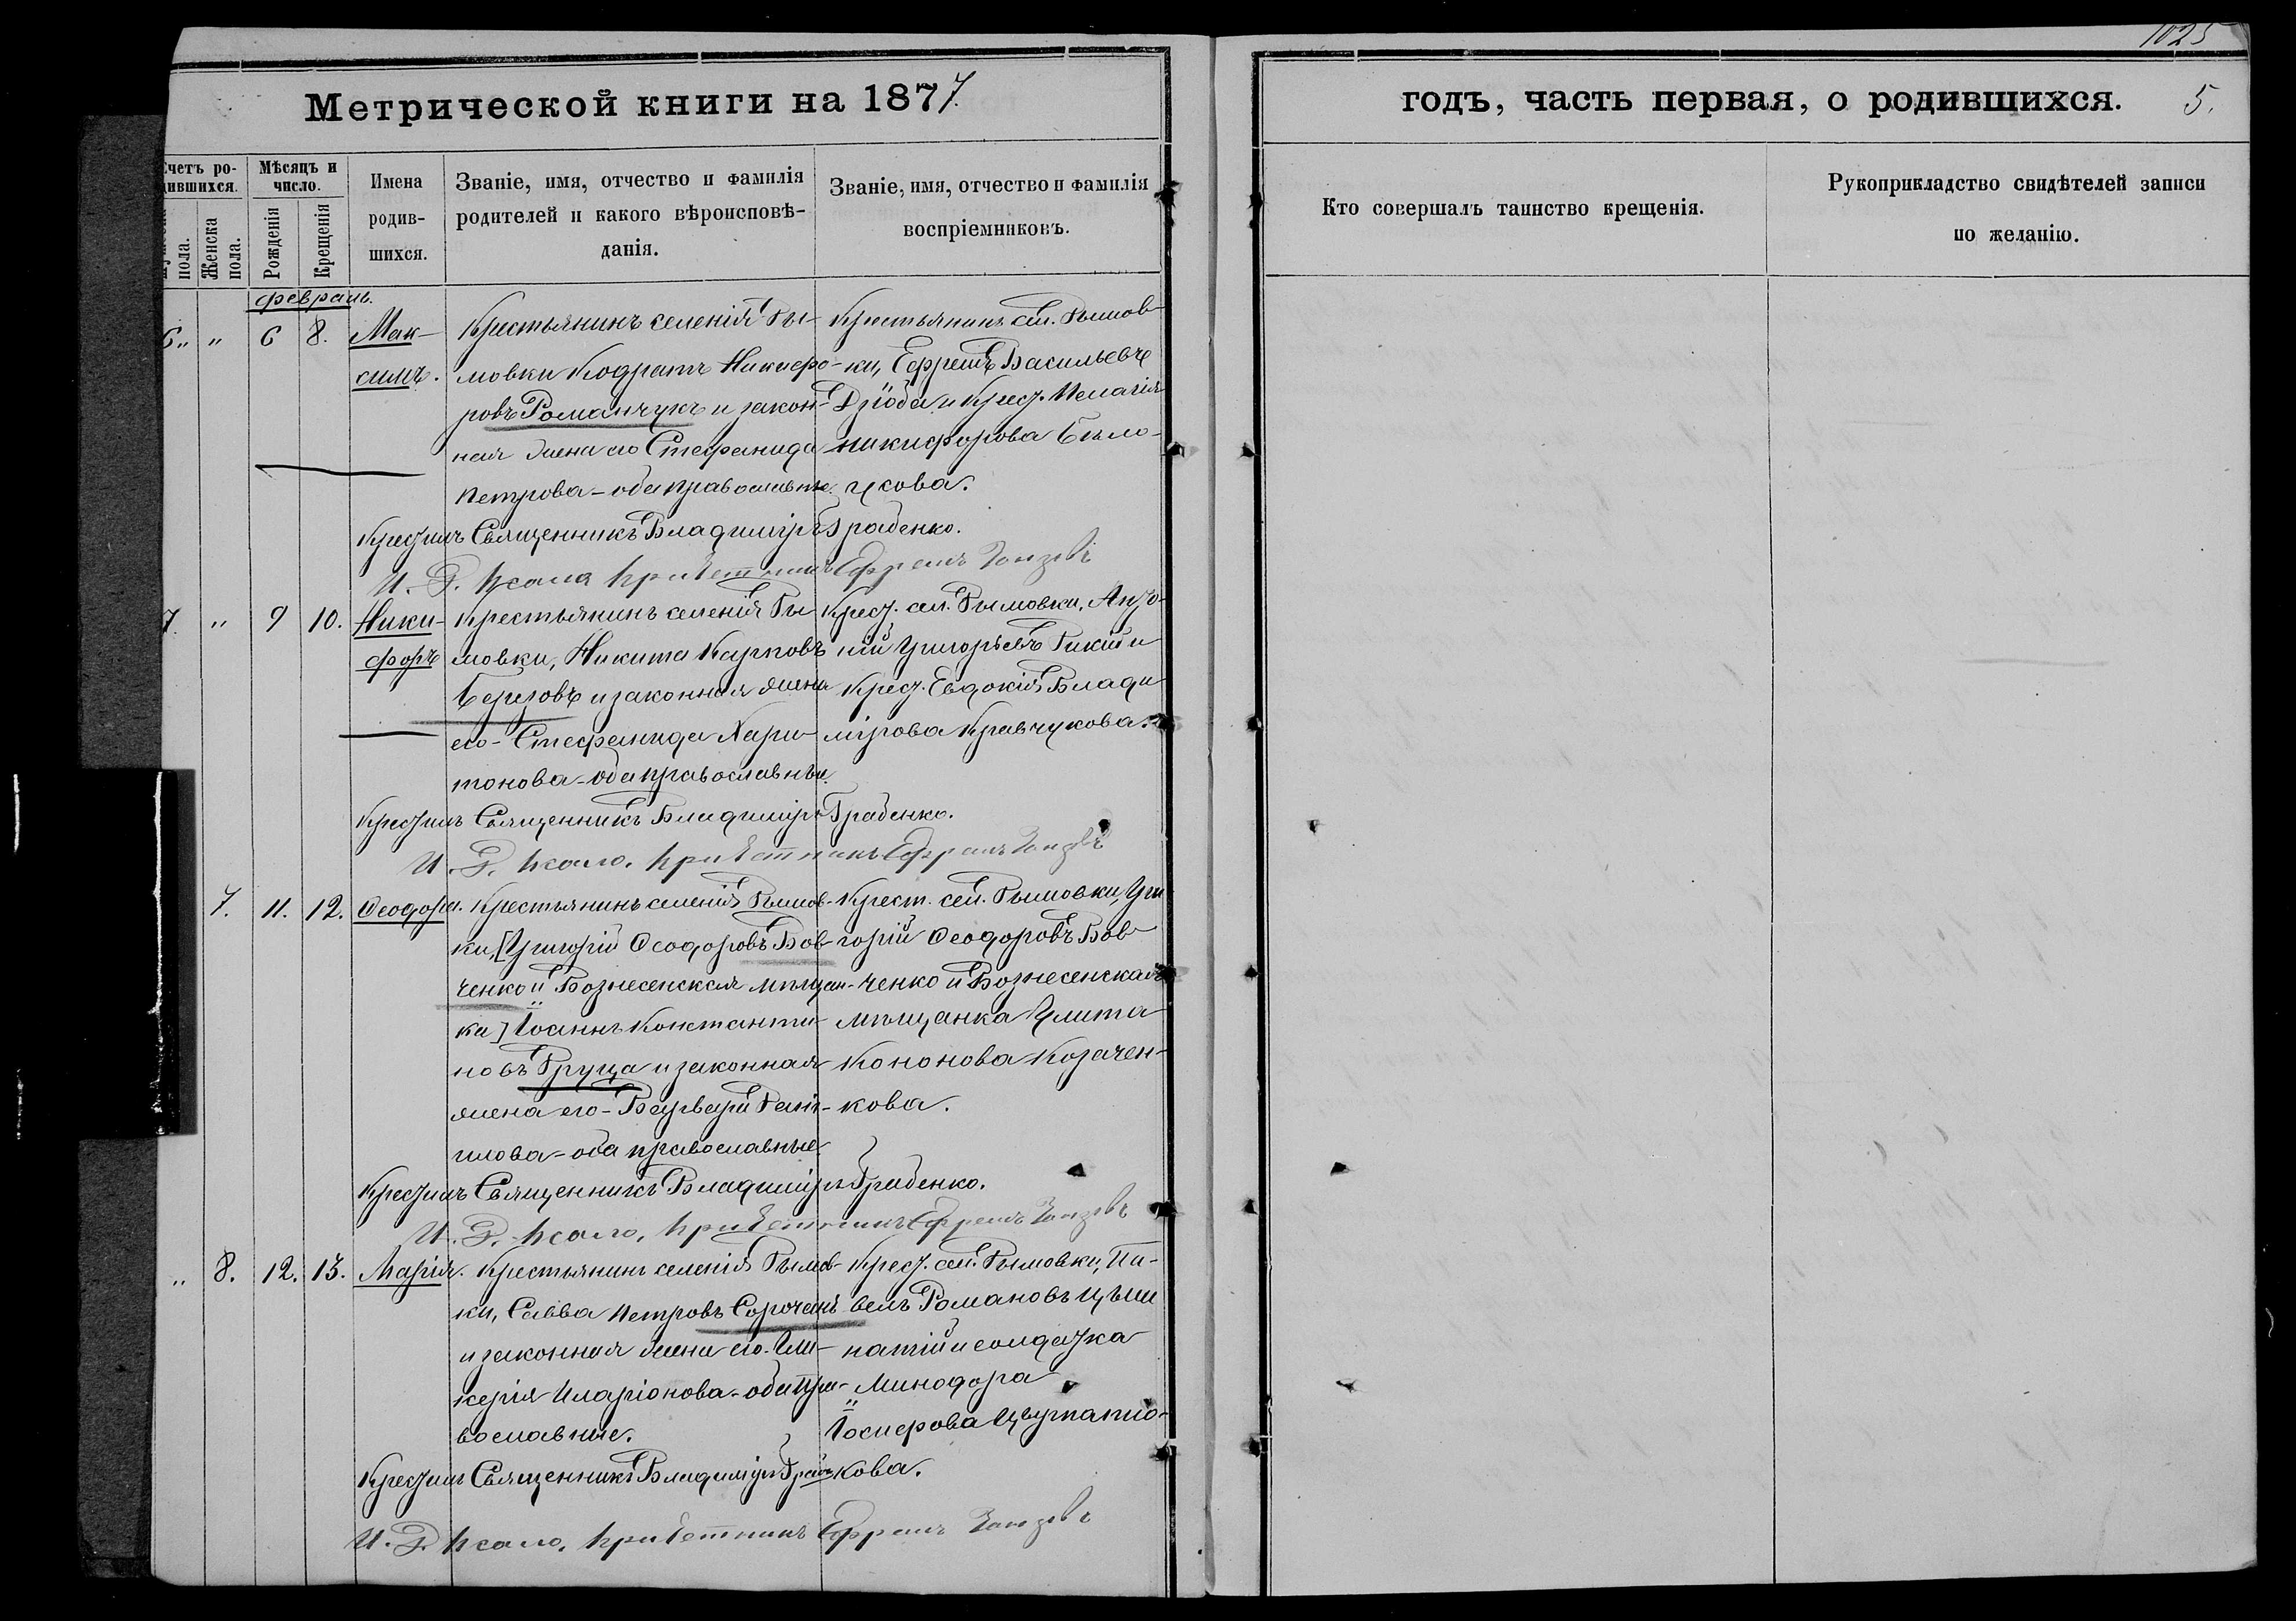 1025
Метрической книги на 1877.
годъ, часть первая, о родившихся. 5.
Счетъ ро-
дившихся.
Мѣсяцъ и
число.
Имена
родив-
шихся.
Званіе, имя, отчество и фамилія
родителей и какого вѣроисповѣ-
данія.
Званіе, имя, отчество и фамилія
воспріемниковъ.
пола.
Женска
пола.
Рожденія
Крещенія
Кто совершалъ таинство крещенія.
Рукоприкладство свидѣтелей записи
по желанію.
февраль.
6 „ „ 6 8. Мак-
симъ.
Крестьянинъ селенія Ры-
мовки Кодратъ Никифо-
ровъ Романчукъ и закон-
ная жена его Стефанида
Петрова - оба православные.
Крестьянинъ сел. Рымов-
ки, Ефремъ Васильевъ
Дзюба и Крест. Пелагія
Никифорова Бѣло-
усова.
Крестилъ Священникъ Владиміръ Грабенко.
И. Д. Псалом причетникъ Ефремъ
7. „ 9 10. Ники-
форъ
Крестьянинъ селенія Ры-
мовки, Никита Карповъ
Березовъ и законная жена
его - Стефанида Хари-
тонова - оба православные.
Крест. сел. Рымовки, Анто-
ній Григорьевъ и
Крест. Евдокія Влади
мірова Кравчукова.
Крестилъ Священникъ Владиміръ Грабенко.
И. Д. псало. причетникъ Ефремъ
7. 11. 12. Ѳеодора.
Крестьянинъ селенія Рымов-
ки, [Григорій Ѳеодоровъ Вов-
ченко и Вознесенская мѣщан-
ка] Іоаннъ Константи-
новъ Груца и законная
жена его - Варвара Дани-
илова - оба православные.
Крест. сел. Рымовки, Гри
горій Ѳеодоровъ Вов
ченко и Вознесенская
мѣщанка Улита
Кононова Козачен-
кова.
Крестилъ Священникъ Владиміръ Грабенко.
И. Д. псало. причетникъ Ефремъ
„ 8. 12. 13. Марія.
Крестьянинъ селенія Рымов-
ки, Савва Петровъ Сорочанъ
и законная жена его. Гли-
керія Иларіонова - оба пра-
вославные.
Крест. сел. Рымовки, Па-
велъ Романовъ Цыми
натій и солдатка
Минодора
Іосифова
кова.
Крестилъ Священникъ Владиміръ Граб.
И. Д. псало. причетникъ Ефремъ